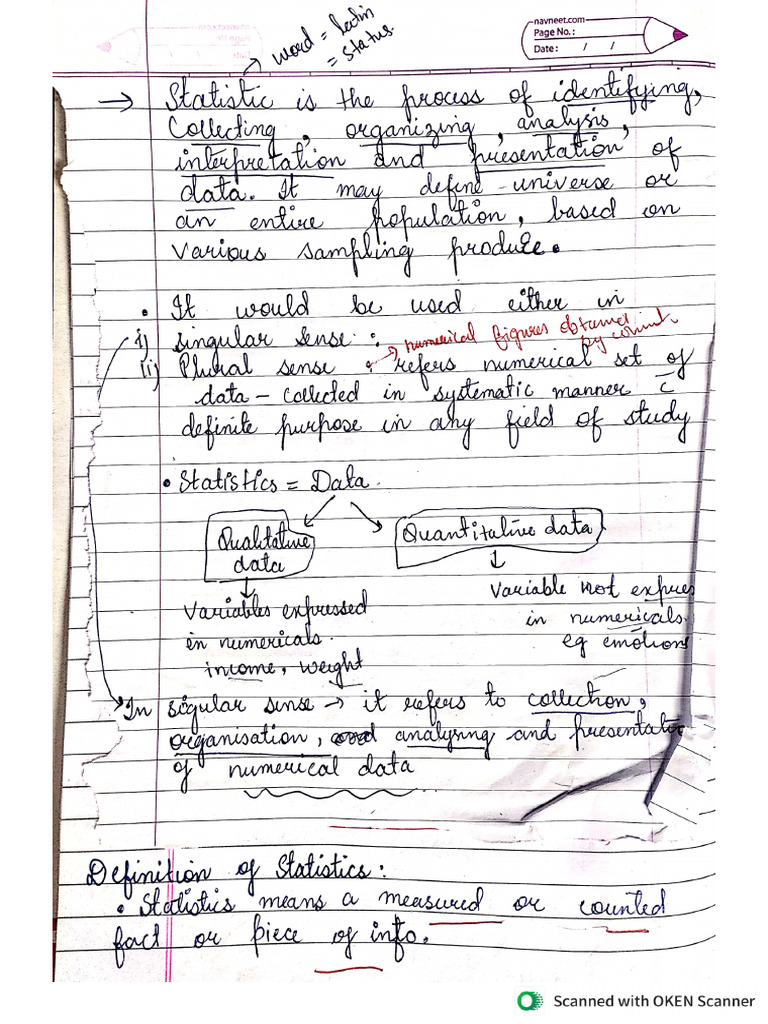 navneet.com
Page No.:
Date: / /
word = latin
= status.
→ Statistic is the process of identifying,
Collecting, organizing, analysis,
interpretation and presentation of
data. It may define universe or
an entire population, based on
various sampling produce.
• It would be used either in
i) singular sense :
→ numerical figures obtained
by count.
(ii) Plural sense : refers numerical set of
data - collected in systematic manner c̄
definite purpose in any field of study
• Statistics = Data.
Qualitative
data
Quantitative data
Variables expressed
in numericals.
income, weight
Variable not expres
in numericals.
eg emotions
In sigular sense → it refers to collection,
organisation, and analysing and presentatio
of numerical data
Definition of Statistics:
• Statistics means a measured or counted
fact or piece of info.
Scanned with OKEN Scanner